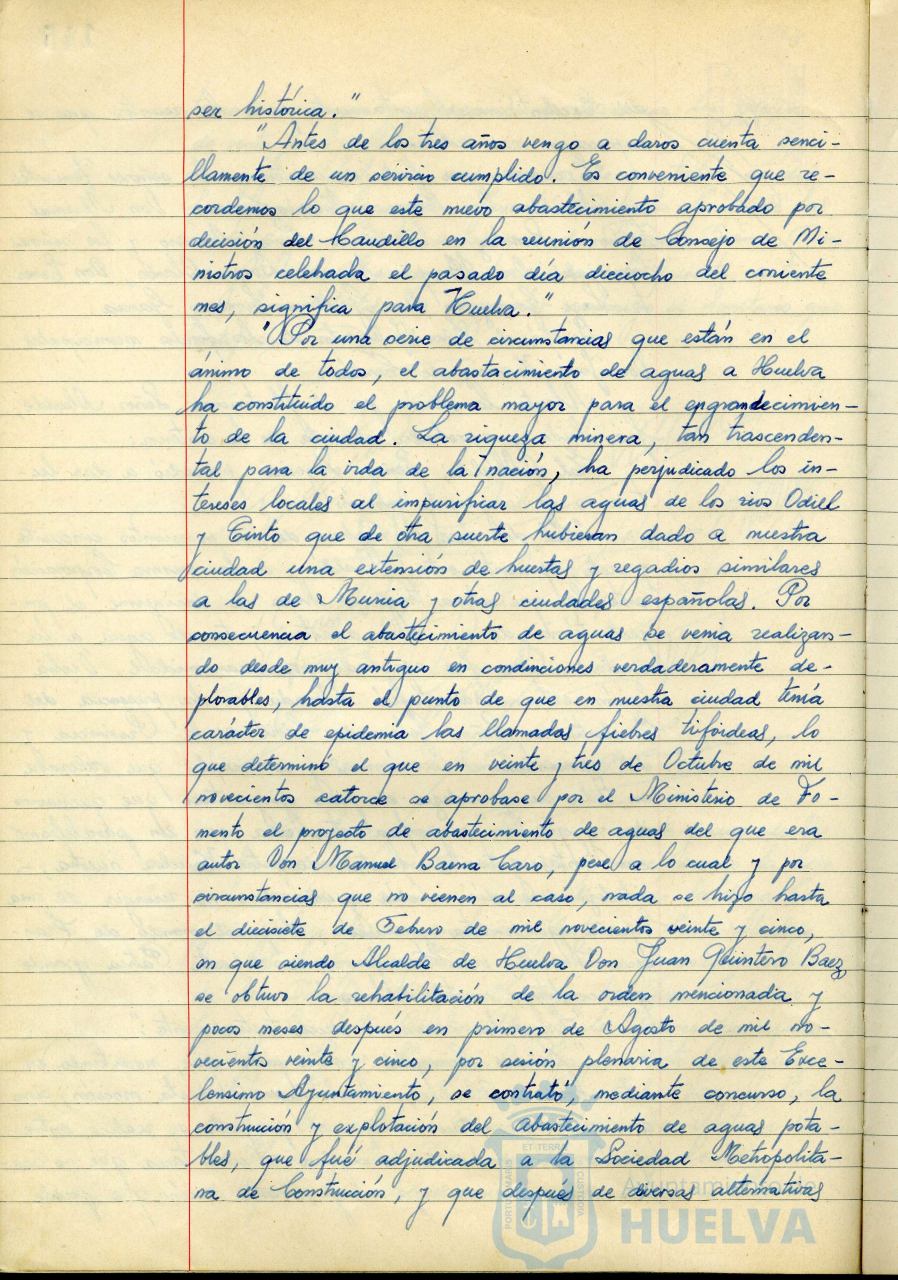 ser histórica."
"Antes de los tres años vengo a daros cuenta senci-
llamente de un servicio cumplido. Es conveniente que re-
cordemos lo que este nuevo abastecimiento aprobado por
decisión del Caudillo en la reunión de Consejo de Mi-
nistros celebrada el pasado día dieciocho del corriente
mes, significa para Huelva."
"Por una serie de circunstancias que están en el
ánimo de todos, el abastacimiento de aguas a Huelva
ha constituido el problema mayor para el engrandecimien-
to de la ciudad. La riqueza minera, tan trascenden-
tal para la vida de la nación, ha perjudicado los in-
tereses locales al impurificar las aguas de los rios Odiel
y Tinto que de otra suerte hubieran dado a nuestra
ciudad una extensión de huertas y regadios similares
a las de Murcia y otras ciudades españolas. Por
consecuencia el abastecimiento de aguas se venia realizan-
do desde muy antiguo en condiciones verdaderamente de-
plorables, hasta el punto de que en nuestra ciudad tenía
carácter de epidemia las llamadas fiebres tifoideas, lo
que determinó el que en veinte y tres de Octubre de mil
novecientos catorce se aprobase por el Ministerio de Fo-
mento el proyecto de abastecimiento de aguas del que era
autor Don Manuel Baena Caro, pese a lo cual y por
circunstancias que no vienen al caso, nada se hizo hasta
el diecisiete de Febrero de mil novecientos veinte y cinco,
en que siendo Alcalde de Huelva Don Juan Quintero Baez,
se obtuvo la rehabilitación de la orden mencionada y
pocos meses después en primero de Agosto de mil no-
vecientos veinte y cinco, por sesión plenaria de este Exce-
lensimo Ayuntamiento, se contrató, mediante concurso, la
construcción y explotación del abastecimiento de aguas pota-
bles, que fué adjudicada a la Sociedad Metropolita-
na de Construcción, y que después de diversas alternativas
Ayuntamiento de
HUELVA